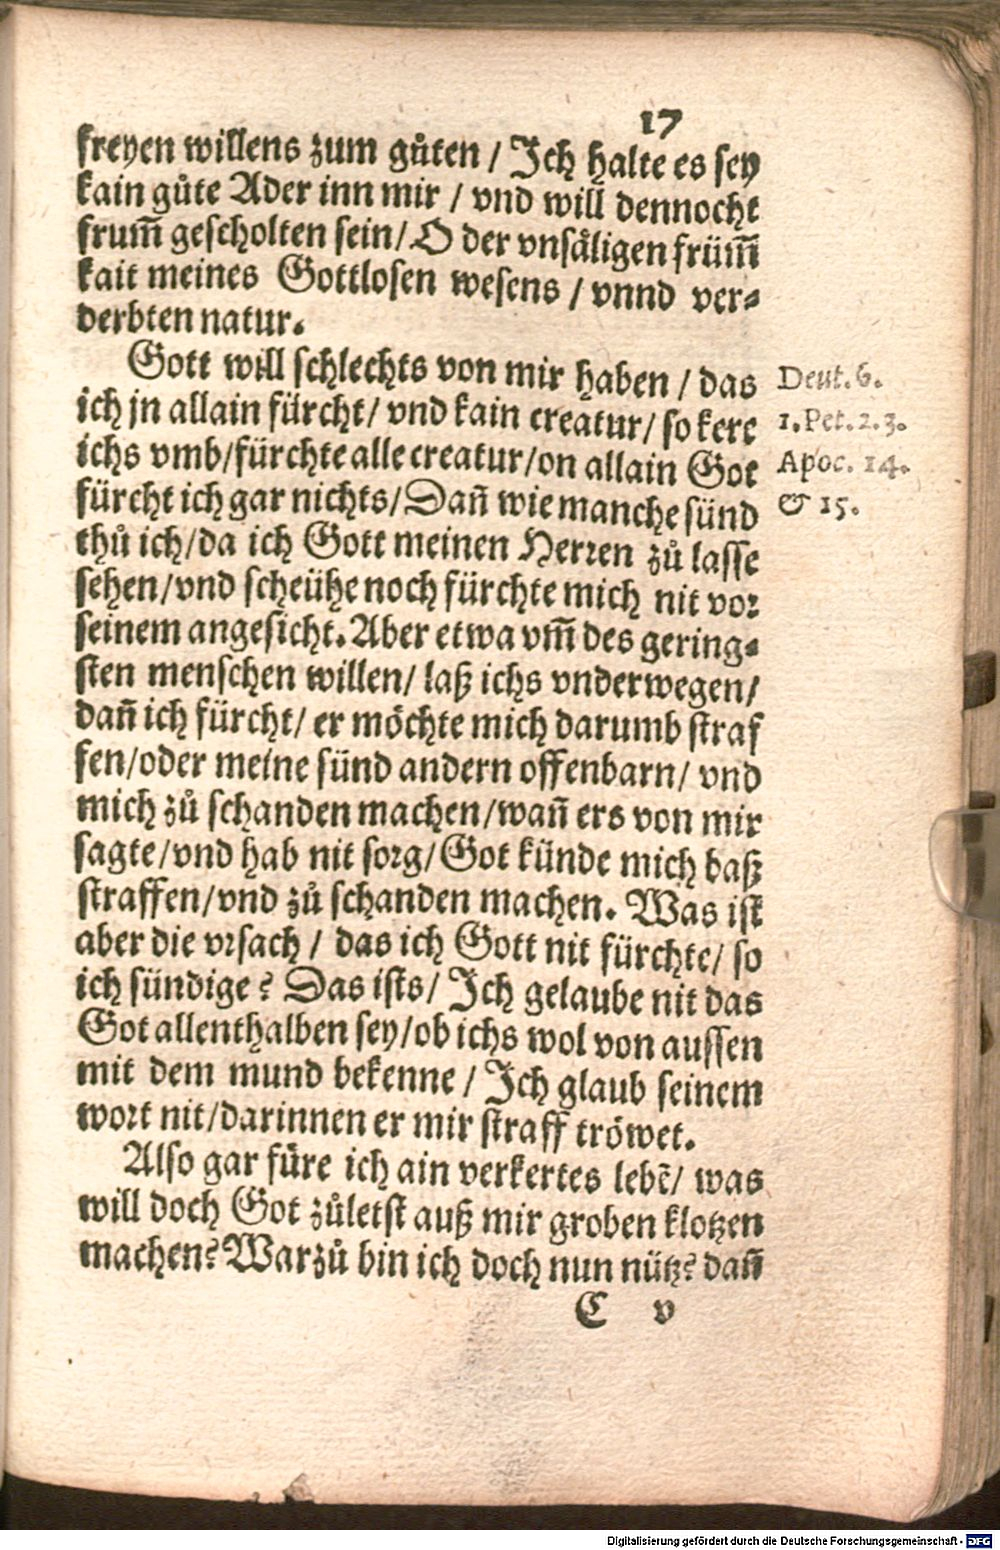 17
freyen willens zum gůten / Ich halte es sey
kain gůte Ader inn mir / vnd will dennocht
frum̃ gescholten sein / O der vnsåligen früm̃
kait meines Gottlosen wesens / vnnd ver⸗
derbten natur.
Gott will schlechts von mir haben / das
ich jn allain fürcht / vnd kain creatur / so kere
ichs vmb / fürchte alle creatur / on allain Got
fürcht ich gar nichts / Dañ wie manche sünd
thů ich / da ich Gott meinen Herren zů lasse
sehen / vnd scheühe noch fürchte mich nit vor
seinem angesicht. Aber etwa vm̃ des gering⸗
sten menschen willen / laß ichs vnderwegen /
dañ ich fürcht / er möchte mich darumb straf
fen / oder meine sünd andern offenbarn / vnd
mich zů schanden machen / wañ ers von mir
sagte / vnd hab nit sorg / Got künde mich baß
straffen / vnd zů schanden machen. Was ist
aber die vrsach / das ich Gott nit fürchte / so
ich sündige? Das ists / Ich gelaube nit das
Got allenthalben sey / ob ichs wol von aussen
mit dem mund bekenne / Ich glaub seinem
wort nit / darinnen er mir straff tröwet.
Also gar füre ich ain verkertes lebẽ / was
will doch Got zůletst auß mir groben klotzen
machen? Warzů bin ich doch nun nütz? dañ
C v
Deut. 6.
1. Pet. 2. 3.
Apoc. 14.
& 15.
Digitalisierung gefördert durch die Deutsche Forschungsgemeinschaft - DFG